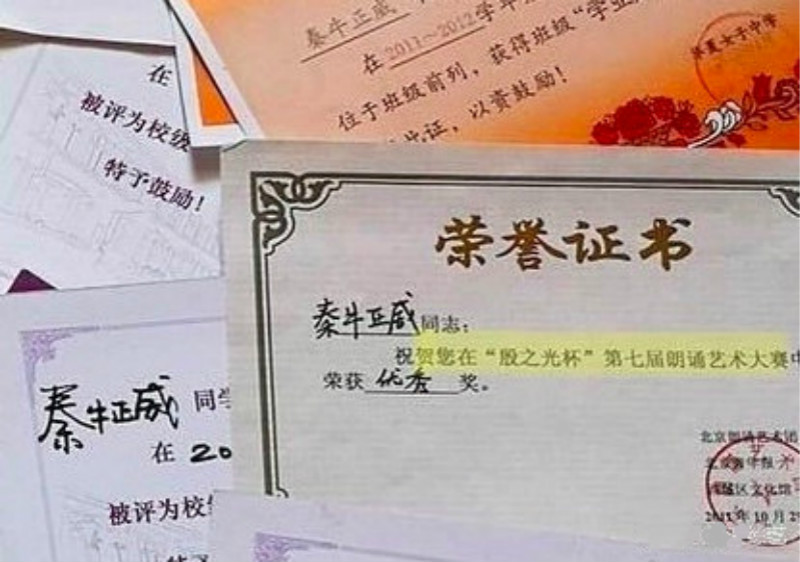 秦牛正威
在2011～2012学年
位于班级前列，获得班级“学业
此证，以资鼓励！
华夏女子中学
在
被评为校级
特予鼓励！
荣誉证书
秦牛正威同志：
祝贺您在“殷之光杯”第七届朗诵艺术大赛中
荣获优秀奖。
北京朗诵艺术团
北京青年报
西城区文化馆
2011年10月29
秦牛正威 同学
在 20
被评为校级
特予